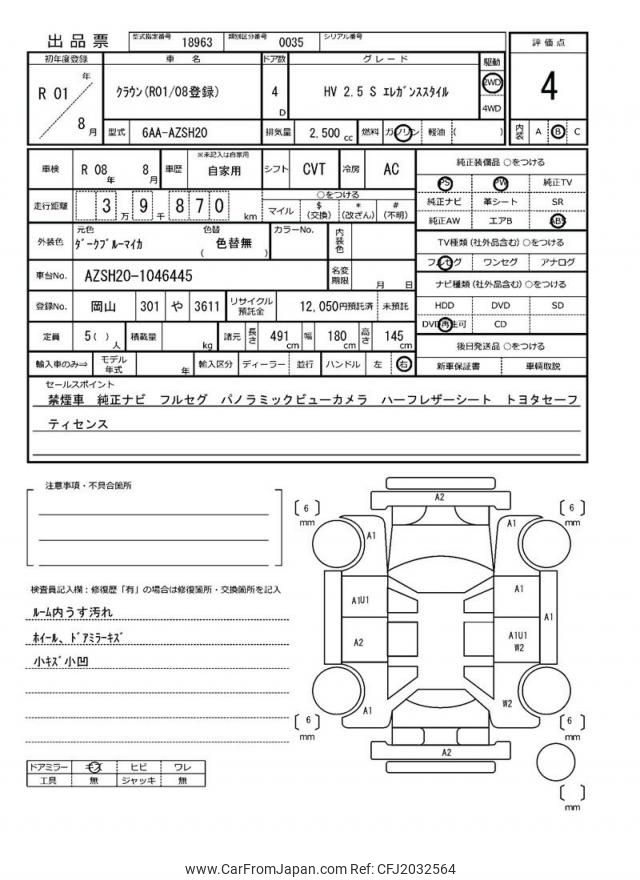 出品票 型式指定番号 18963 類別区分番号 0035 シリアル番号
初年度登録 車名 ドア数 グレード 駆動 評価点
R 01 年 8 月 クラウン(R01/08登録) 4 D HV 2.5 S エレガンススタイル 2WD 4WD 4
型式 6AA-AZSH20 排気量 2,500 cc 燃料 ガソリン 軽油 ( ) 内装 A B C
車検 R 08 年 8 月 車歴 ※未記入は自家用 自家用 シフト CVT 冷房 AC 純正装備品 ○をつける
PS PW 純正TV
走行距離 3 万 9 千 8 7 0 km ○をつける
マイル $ (交換) * (改ざん) # (不明)
純正ナビ 革シート SR
純正AW エアB ABS
外装色 元色 ダークブルーマイカ 色替 ( 色替無 ) カラーNo. 内装色
TV種類 (社外品含む) ○をつける
フルセグ ワンセグ アナログ
車台No. AZSH20-1046445 名変期限 月 日
ナビ種類 (社外品含む) ○をつける
登録No. 岡山 301 や 3611 リサイクル預託金 12,050円預託済 未預託
HDD DVD SD
DVD再生可 CD
定員 5( ) 人 積載量 kg 諸元 長さ 491 cm 幅 180 cm 高さ 145 cm
後日発送品 ○をつける
輸入車のみ⇒ モデル年式 年 輸入区分 ディーラー 並行 ハンドル 左 右 新車保証書 車輌取説
セールスポイント
禁煙車 純正ナビ フルセグ パノラミックビューカメラ ハーフレザーシート トヨタセーフ
ティセンス
注意事項・不具合箇所
検査員記入欄：修復歴「有」の場合は修復箇所・交換箇所を記入
ルーム内うす汚れ
ホイール、ドアミラーキズ
小キズ小凹
ドアミラー キズ ヒビ ワレ
工具 無 ジャッキ 無
A2
6 mm
6 mm
A1
A1
A1U1
A1
A1
A2
A1U1
W2
A1
W2
6 mm
6 mm
A2
mm
www.CarFromJapan.com Ref: CFJ2032564